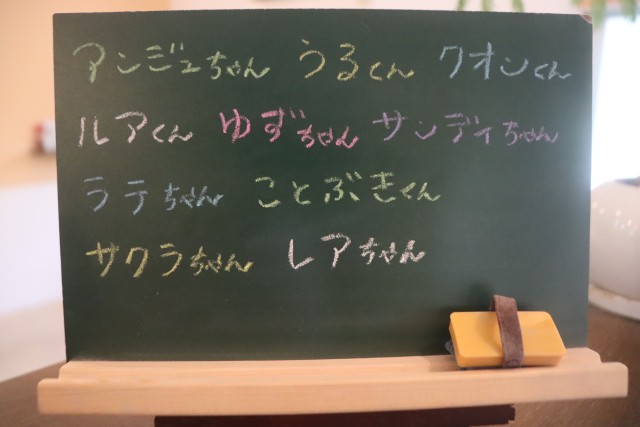 アンジュちゃん うるくん クオンくん
ルアくん ゆずちゃん サンディちゃん
ラテちゃん ことぶきくん
サクラちゃん レアちゃん